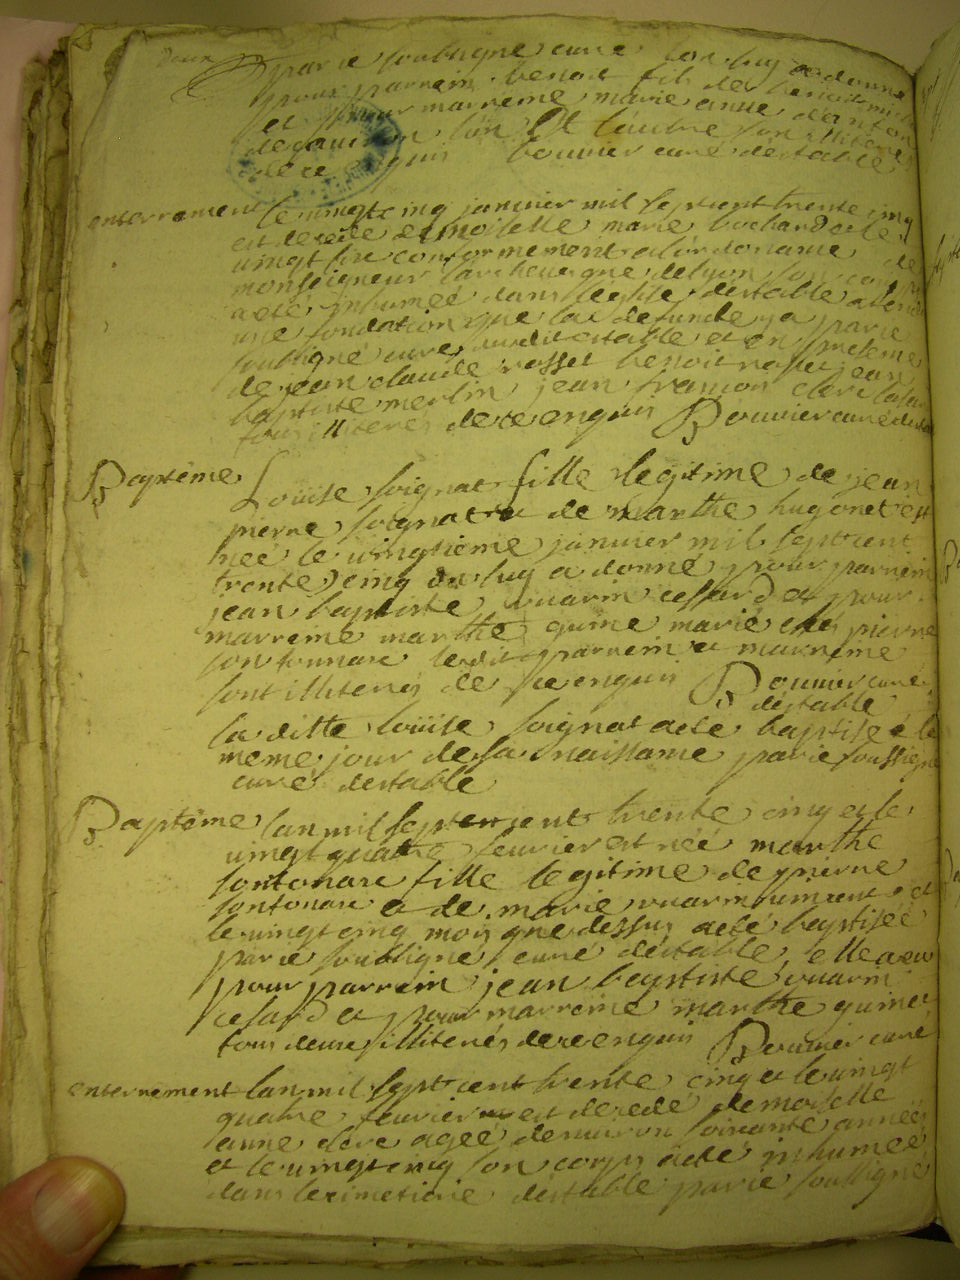 par ie soubsigne cure l'on luy a donne
pour parrein benoit fils de benoit
et pour marreine marie anne
l'un et l'autre son illiteres
de ce bouvier curé destable
enterrement le vingt cinq janvier mil sept cent trente cinq
est decede demoiselle marie bochard et le
vingt six conformement a l'ordonance de
monseigneur l'archevesque de lyon son corps
a eté inhumeé dans l'eglise destable
une fondation que la defunde y a par ie
soubsigné curé dudit estable et en presence
de jean claude rosset benoit rosset jean
baptiste merlin jean françois clerc
tous illiteres de ce enquis Bouvier curé
Baptême Loüise soignat fille legitime de jean
pierre soignat et de marthe hugonet est
neé le vingtieme janvier mil sept cent
trente cinq on luy a donné pour parrein
jean baptiste vuarin cessard et pour
marreine marthe guine marié pierre
sontonnare ledit parrein et marreine
sont illiterés de ce enquis Bouvier curé
destable
la ditte loüise soignat a eté baptisée le
meme jour de sa naissance par ie soussigné
curé destable
Baptême l'an mil sept cent trente cinq et le
vingt quatre fevrier est née marthe
sontonare fille legitime de pierre
sontonare et de marie vuarin et
le vingt cinq mois que dessus a eté baptiseé
par ie soubsigne curé destable elle a eu
pour parrein jean baptiste vuarin
cesard et pour marreine marthe guinet
tous deux illiterés de ce enquis Bouvier curé
enterrement l'an mil sept cent trente cinq et le vingt
quatre fevrier est decedé demoiselle
anne clere ageé denviron soixante années
et le vingt cinq son corps a eté inhumeé
dans le cimetiere destable par ie soubsigné